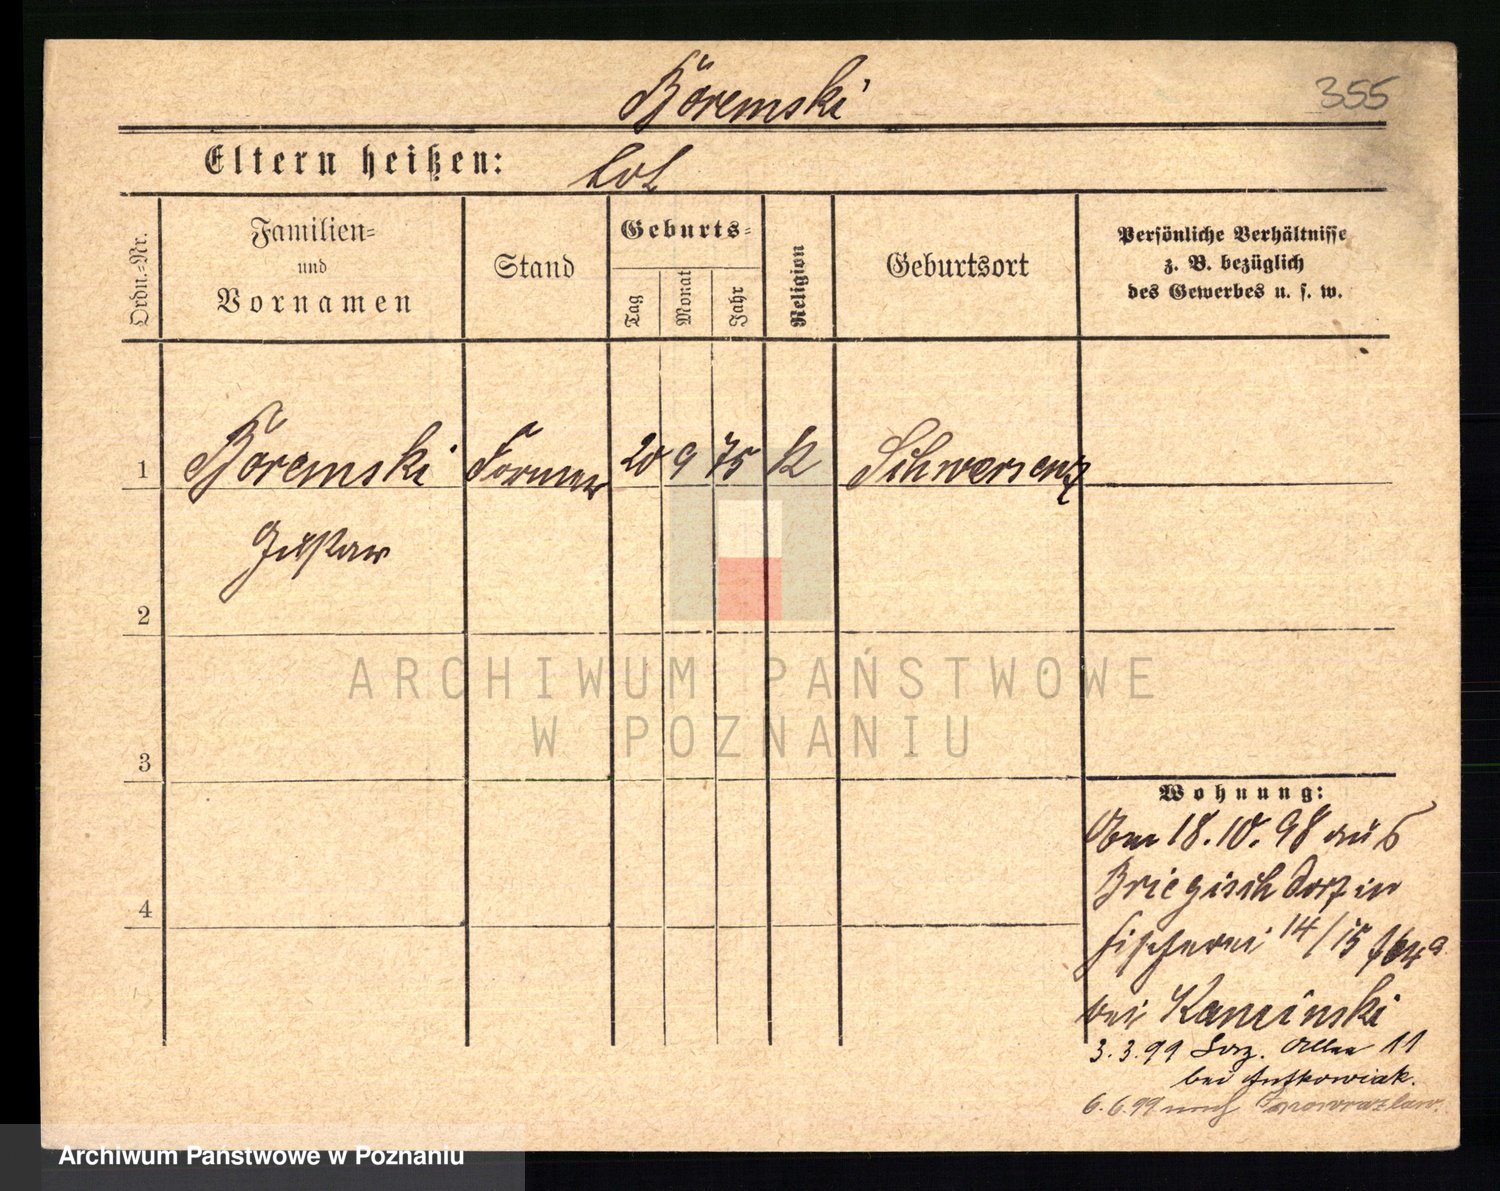 Böremski
355
Eltern heißen:
Familien-
und
Vornamen
Ordn.-Nr.
Stand
Geburts-
Tag
Monat
Jahr
Religion
Geburtsort
Persönliche Verhältnisse
z. B. bezüglich
des Gewerbes u. s. w.
1 Böremski Former 20 9 75 K Schwersenz
Gustav
2
ARCHIWUM PAŃSTWOWE
W POZNANIU
3
4
Wohnung:
18.10.98 aus
in
Fischerei 14/15
bei Kaminski
3.3.99 Allee 11
bei Antkowiak.
6.6.99 nach Inowrazlaw.
Archiwum Państwowe w Poznaniu